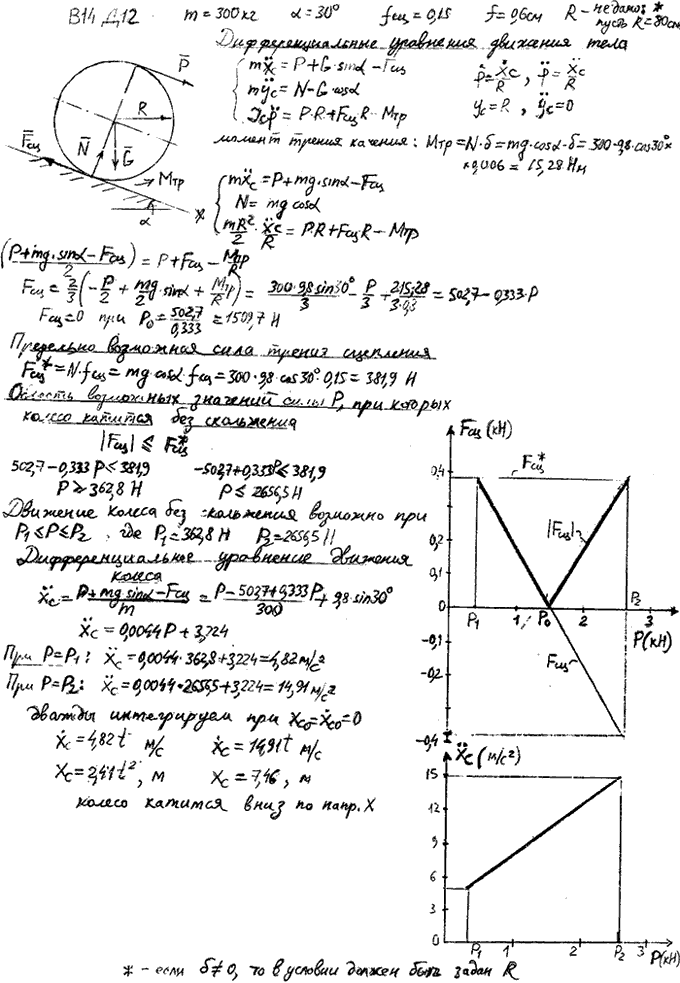 В14 Д12 m = 300 кг α = 30° fсц = 0,15 f = 0,6 см R – не дано: *
пусть R = 80 см
Дифференциальные уравнения движения тела
mẍc = P + G·sinα – Fсц
mÿc = N – G·cosα
Jcφ̈ = P·R + Fсц·R – Mтр
φ̇ = ẋc/R, φ̈ = ẍc/R
yc = R, ÿc = 0
момент трения качения: Mтр = N·δ = mg·cosα·δ = 300·9,8·cos30°×
×0,006 = 15,28 Нм
P̄
R
F̄сц
N̄
Ḡ
Mтр
α
x
mẍc = P + mg·sinα – Fсц
N = mg cosα
mR²/2 · ẍc/R = P·R + Fсц·R – Mтр
(P + mg·sinα – Fсц)/2 = P + Fсц – Mтр/R
Fсц = 2/3(–P/2 + mg/2·sinα + Mтр/R) = 300·9,8 sin30°/3 – P/3 + 2·15,28/3·0,3 = 502,7 – 0,333·P
Fсц = 0 при P₀ = 502,7/0,333 = 1509,7 Н
Предельно возможная сила трения сцепления
Fсц* = N·fсц = mg·cosα·fсц = 300·9,8·cos30°·0,15 = 381,9 Н
Область возможных значений силы P, при которых
колесо катится без скольжения
|Fсц| ≤ Fсц*
502,7 – 0,333 P ≤ 381,9 –502,7 + 0,333P ≤ 381,9
P ≥ 362,8 Н P ≤ 2656,5 Н
Движение колеса без скольжения возможно при
P₁ ≤ P ≤ P₂, где P₁ = 362,8 Н P₂ = 2656,5 Н
Дифференциальное уравнение движения
колеса
ẍc = (P + mg sinα – Fсц)/m = (P – 502,7 + 0,333 P)/300 + 9,8·sin30°
ẍc = 0,0044 P + 3,224
При P = P₁: ẍc = 0,0044·362,8 + 3,224 = 4,82 м/с²
При P = P₂: ẍc = 0,0044·2656,5 + 3,224 = 14,91 м/с²
дважды интегрируем при xc₀ = ẋc₀ = 0
ẋc = 4,82 t м/с ẋc = 14,91t м/с
xc = 2,41 t², м xc = 7,46, м
колесо катится вниз по напр. X
Fсц (кН)
Fсц*
0,4
|Fсц|
0,2
0,1
0
P₁ 1 P₀ 2 P₂ 3
P(кН)
–0,1
–0,2
Fсц
–0,4
ẍc (м/с²)
15
12
9
6
3
0
P₁ 1 2 P₂ 3 P(кН)
* – если δ ≠ 0, то в условии должен быть задан R